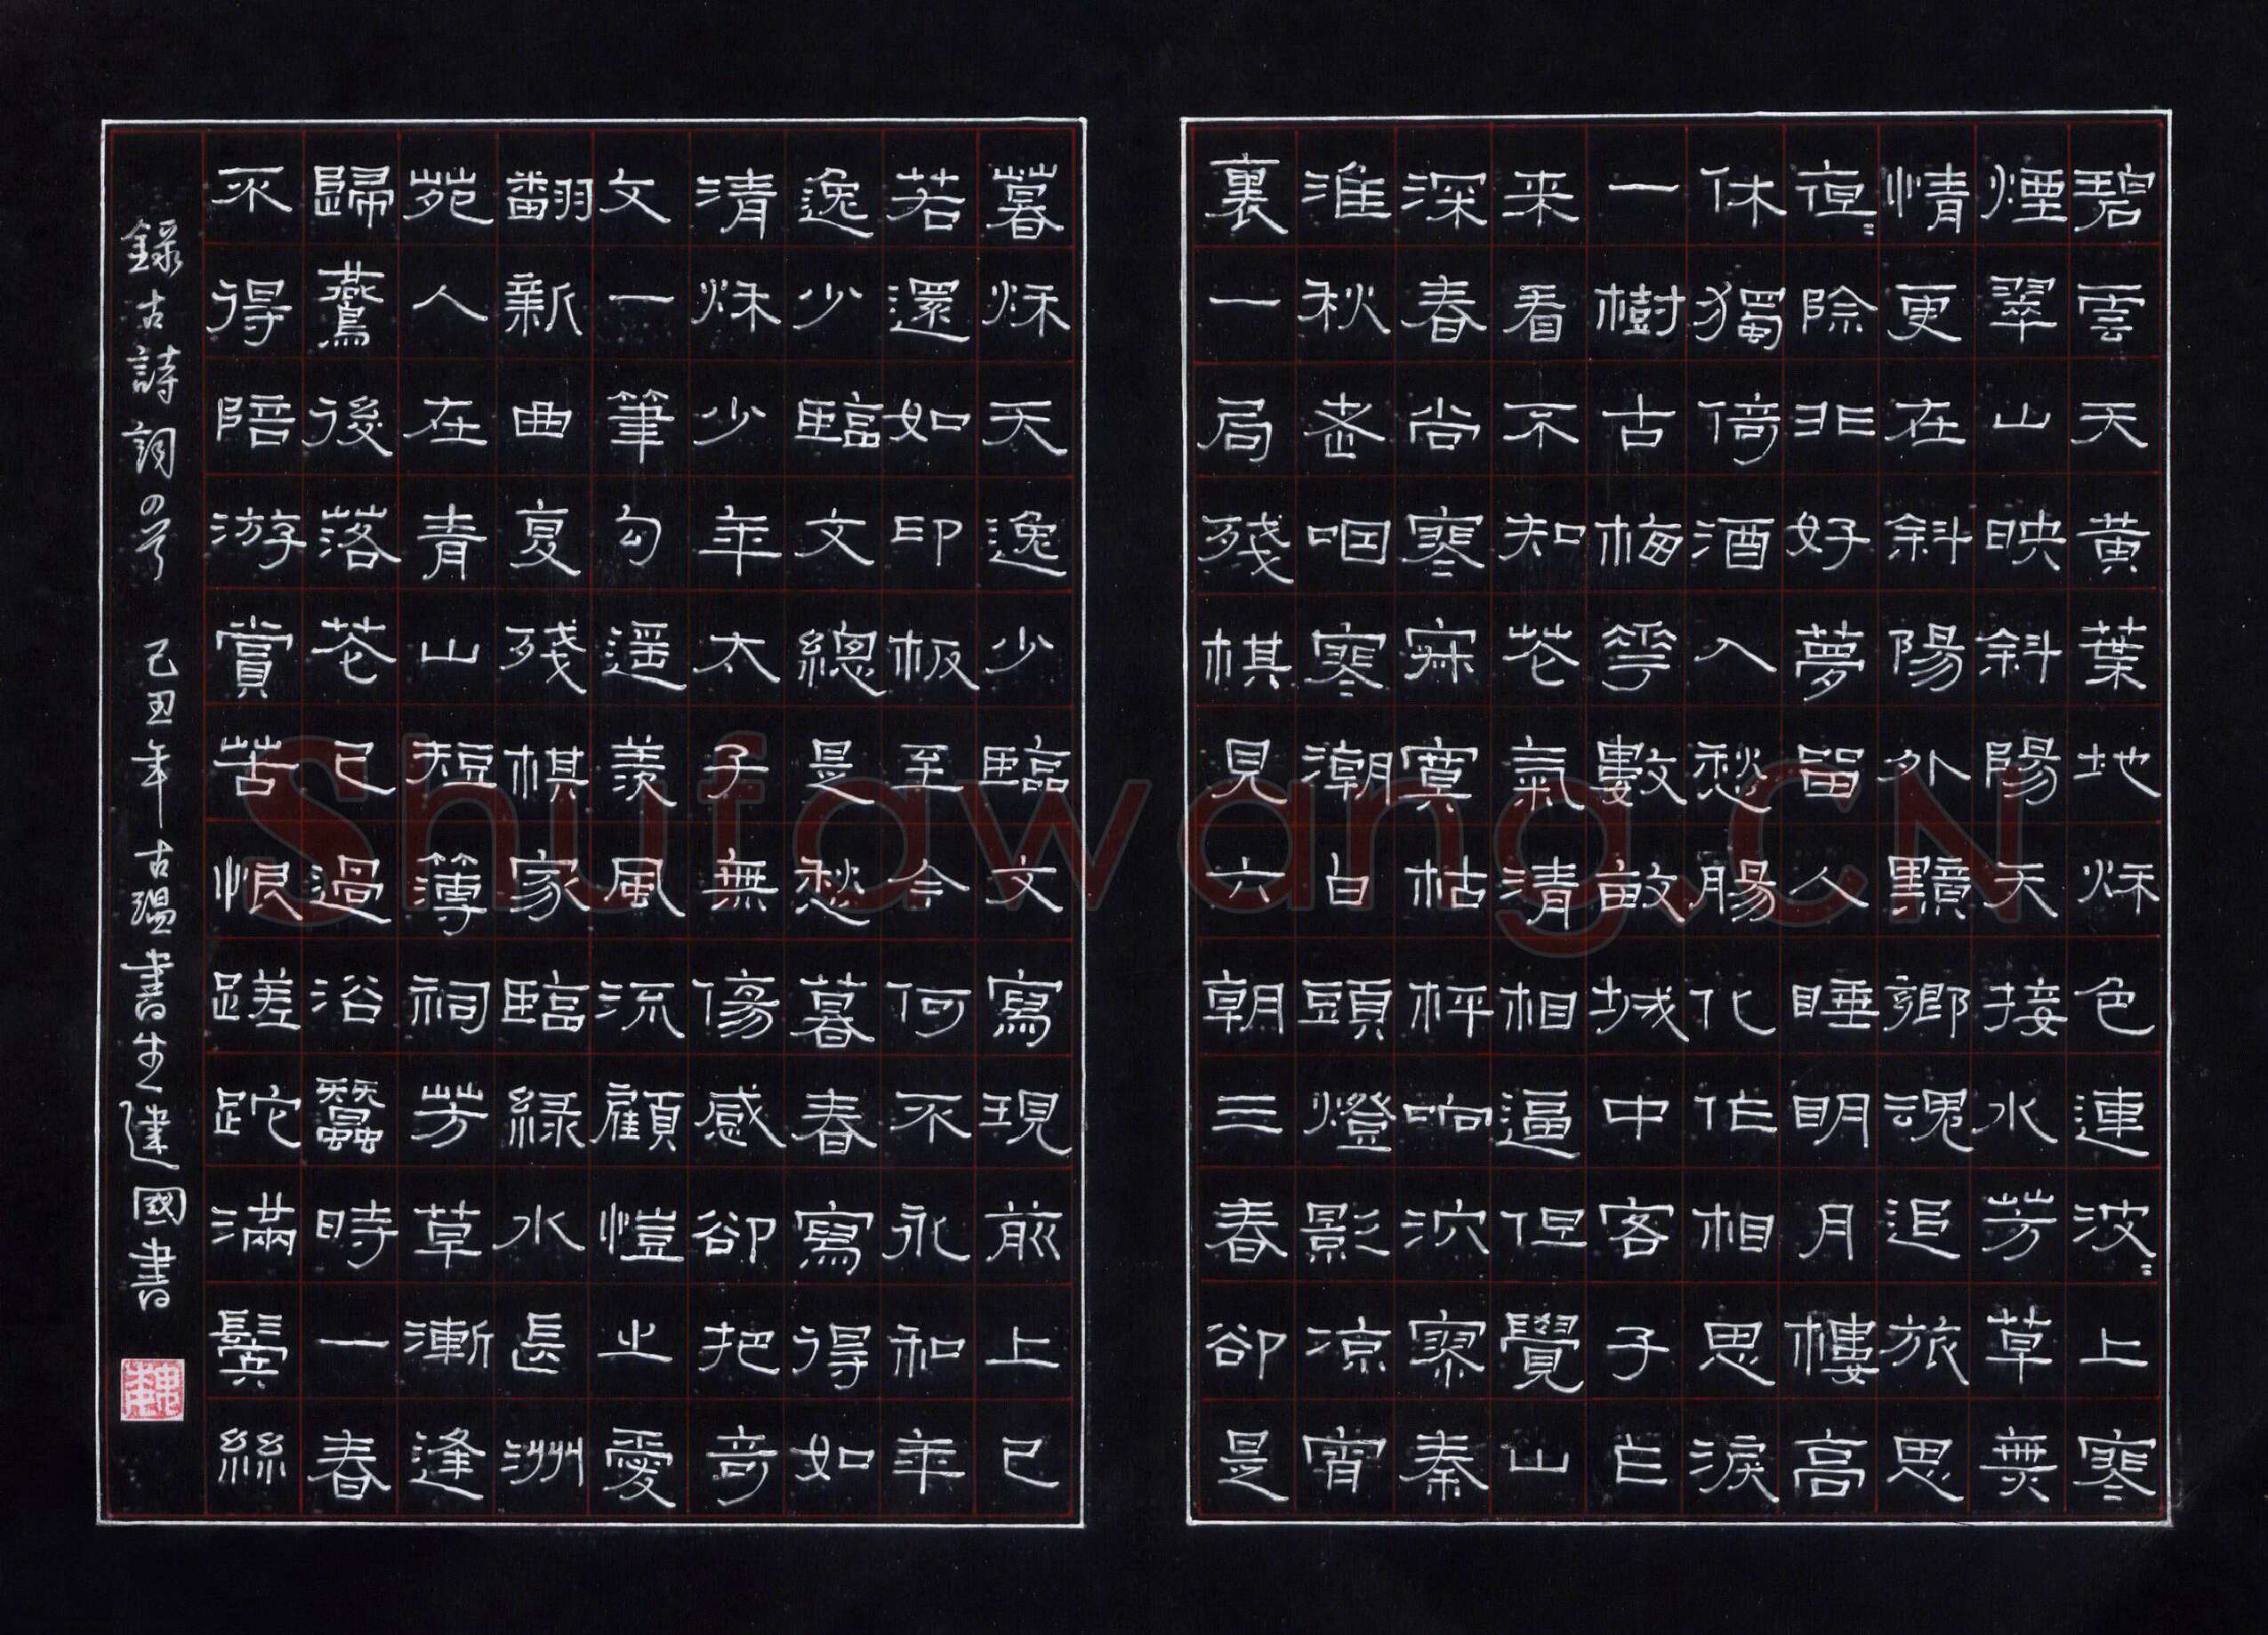 碧雲天黃葉地秌色連波〻上寒
煙翠山映斜陽天接水芳草無
情更在斜陽外黯鄉魂追旅思
夜〻除非好夢留人睡明月樓高
休獨倚酒入愁腸化作相思淚
一樹古梅華數畝城中客子乍
来看不知花氣清相逼但覺山
深春尚寒寂寞枯枰响泬寥秦
淮秋老咽寒潮白頭燈影凉宵
裏一局殘棋見六朝三春卻是
暮秌天逸少臨文寫現前上巳
若還如印板至今何不永和年
逸少臨文總是愁暮春寫得如
清秌少年太子無傷感卻把奇
文一筆勾遥羨風流顧愷之愛
翻新曲夏殘棋家臨綠水長洲
苑人在青山短簿祠芳草漸逢
歸鷰後落花已過浴蠶時一春
不得陪游賞苦恨蹉跎滿鬢絲
錄古詩詞の首 己丑年古溫書生建國書
Shufawang.CN